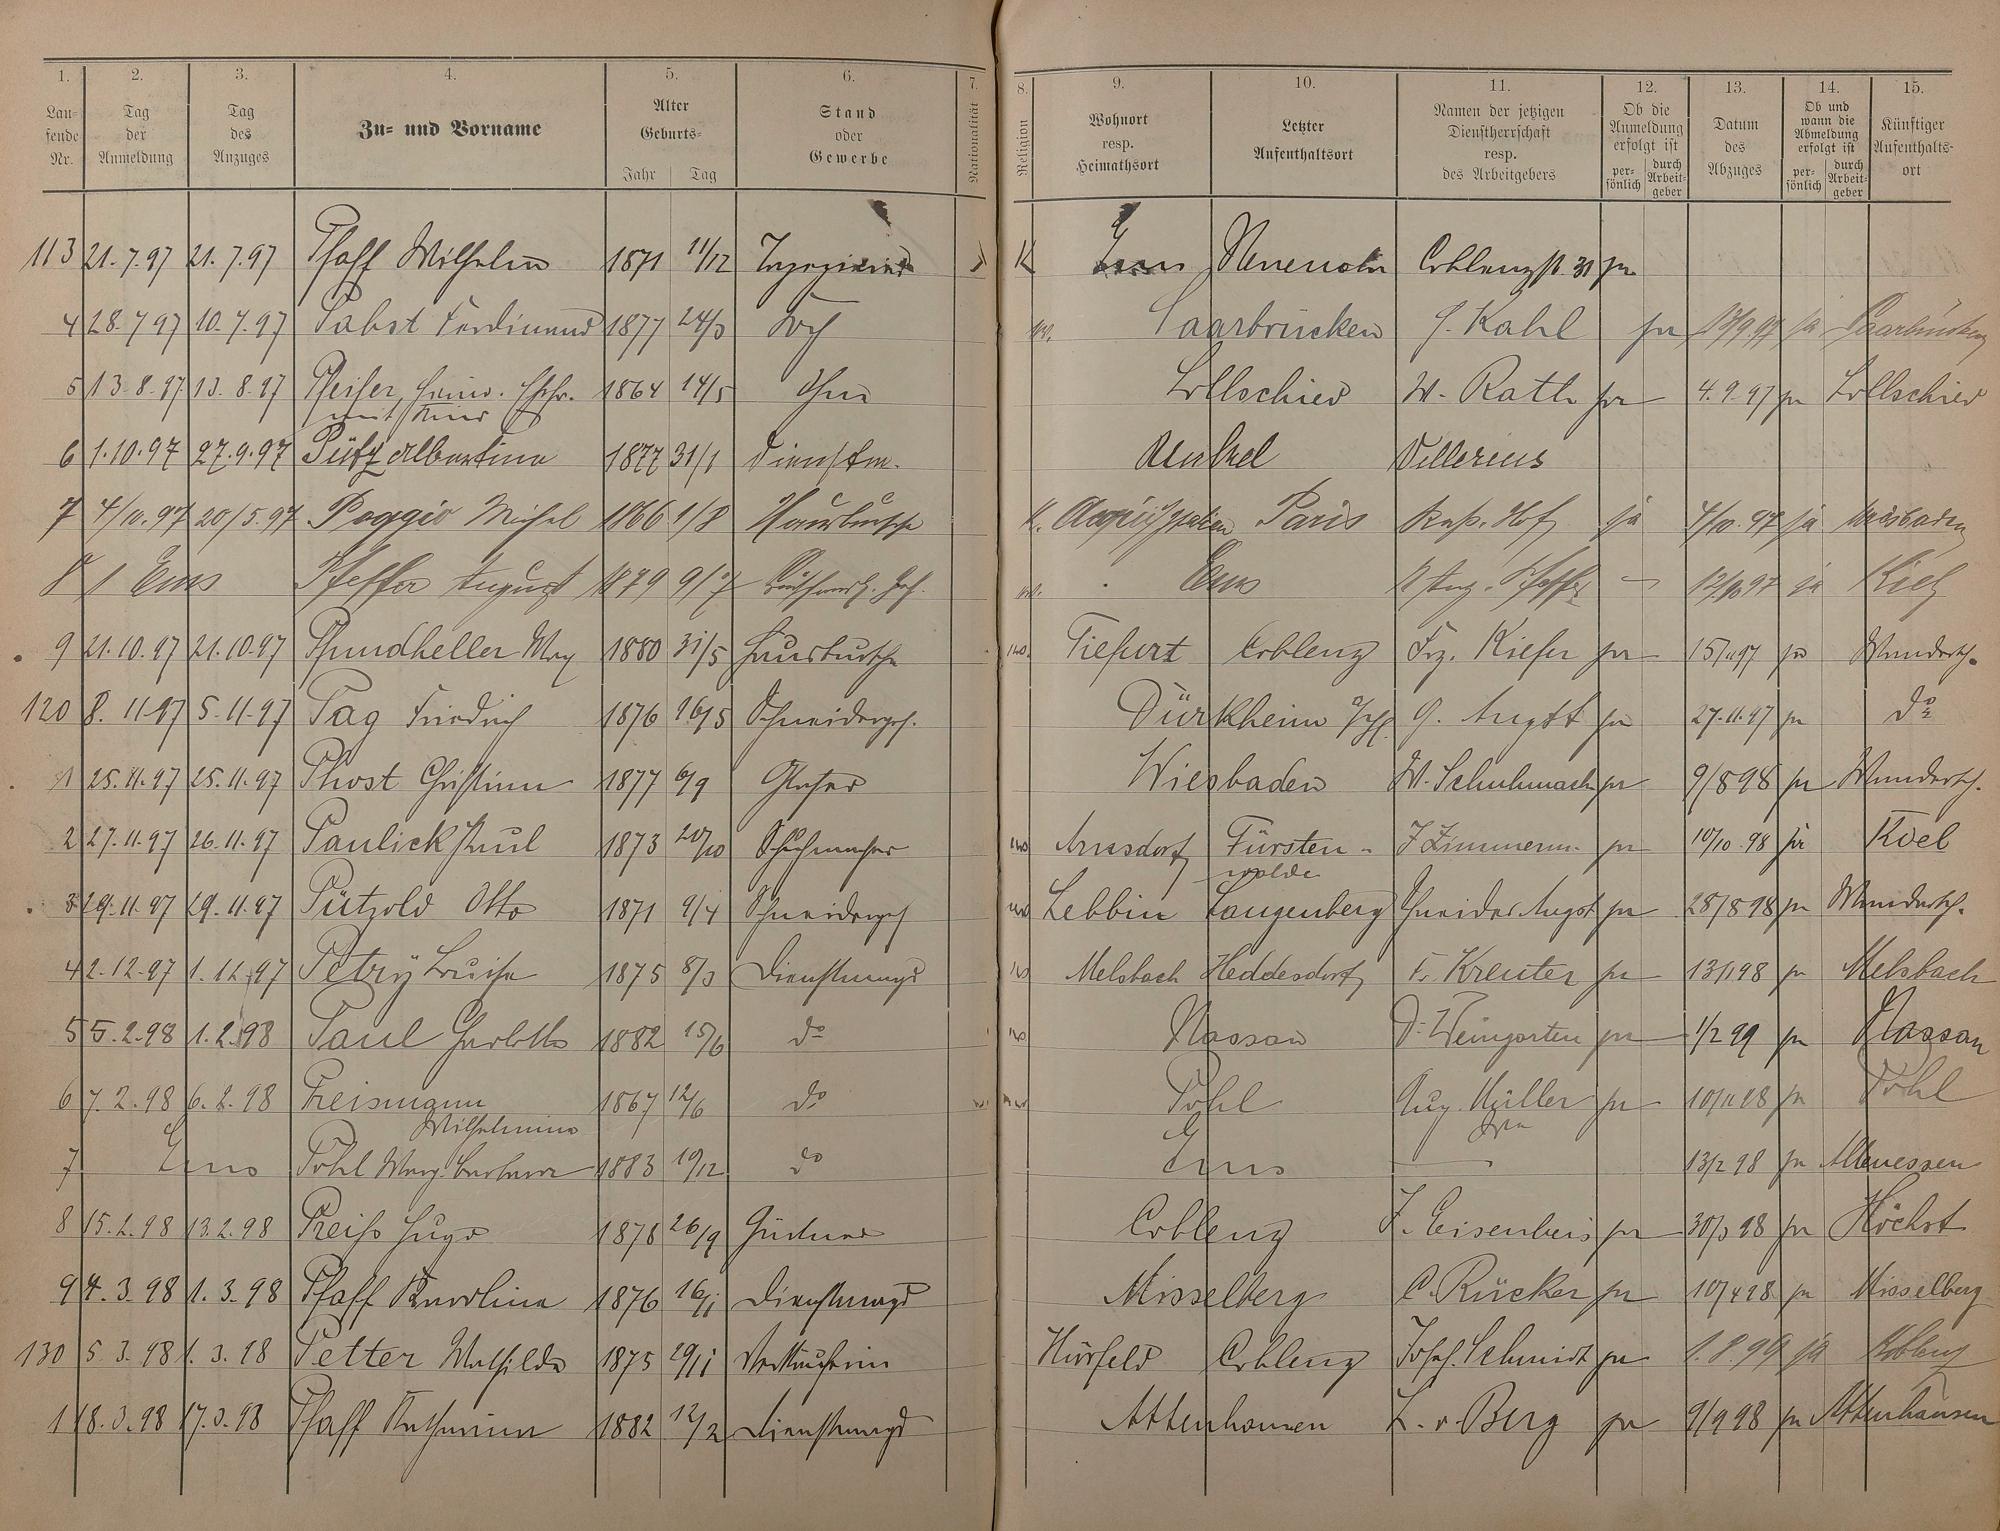 1. 2. 3. 4. 5. 6. 7. 8. 9. 10. 11. 12. 13. 14. 15.
Lau-
fende
Nr.
Tag
der
Anmeldung
Tag
des
Anzuges
Zu- und Vorname
Alter
Geburts-
Jahr Tag
Stand
oder
Gewerbe
Nationalität
Religion
Wohnort
resp.
Heimathsort
Letzter
Aufenthaltsort
Namen der jetzigen
Dienstherrschaft
resp.
des Arbeitgebers
Ob die
Anmeldung
erfolgt ist
per-
sönlich
durch
Arbeit-
geber
Datum
des
Abzuges
Ob und
wann die
Abmeldung
erfolgt ist
per-
sönlich
durch
Arbeit-
geber
Künftiger
Aufenthalts-
ort
113 21.7.97 21.7.97 Pfaff Wilhelm 1871 11/12 K Ems Coblenzst. 31 ja
4 28.7 97 10.7.97 Pabst Ferdinand 1877 24/3 Koch Saarbrücken G. Kahl ja ja Saarbrücken
5 13.8.97 13.8.97 Pfeifer, Heinr. Ehefr. 1864 14/5 Ohne Lollschied W. Rath ja 4.9.97 ja Lollschied
mit Kind
6 1.10.97 27.9.97 Pütz Albertine 1877 31/1 Dienstm. Unkel
7 4/10.97 20/5.97 Poggio Michel 1866 1/8 Hausbursche K. Paris Russ. Hof ja 4/10.97 ja Wiesbaden
8 / Ems Pfeffer August 1879 9/7 Ems Aug. Pfeffer — 12/10 97 ja Kiel
9 21.10.97 21.10.97 Pfundheller Max 1880 31/5 Hausbursche Tiefurt Coblenz Frz. Kiefer ja 15/11 97 ja Wandersch.
120 8.11 97 5.11.97 Pag Friedrich 1876 16/5 Schneiderges. Dürkheim G. Angst ja 27.11.97 ja do
1 25.11.97 25.11.97 Phost Christian 1877 6/9 Glaser Wiesbaden W. Schuhmach ja 9/8 98 ja Wandersch.
2 27.11.97 26.11.97 Paulick Paul 1873 20/10 Schuhmacher Arnsdorf Fürsten- J Zimmerm. ja 10/10.98 ja Kiel
walde
3 29.11.97 29.11.97 Pützold Otto 1871 9/4 Schneiderges Lebbin Langenberg Schneider Angst ja 28/8 98 ja Wandersch.
4 2.12.97 1.12.97 Petry Louise 1875 8/3 Dienstmagd Melsbach Heddesdorf Fr. Kreuter ja 13/1 98 ja Melsbach
5 5.2.98 1.2.98 Paul Charlotte 1882 15/6 do Nassau Dr. Weingarten ja 1/2 99 ja Nassau
6 7.2.98 6.2.98 Preismann 1867 12/6 do Pohl Aug. Müller ja 10/11 98 ja Pohl
Wilhelmine Wwe
7 Ems Pohl Marg. Barbara 1883 19/12 do Ems — 13/2 98 ja Altenessen
8 15.2.98 13.2.98 Preiß Hugo 1878 26/9 Gärtner Coblenz J. Eisenbeis ja 30/3 98 ja Höchst
9 4.3.98 1.3.98 Pfaff Karoline 1876 16/1 Dienstmagd Misselberg C. Rücker ja 10/4 98 ja Misselberg
130 5.3.98 1.3.98 Petter Mathilde 1875 29/11 Verkäuferin Coblenz Josef Schmidt ja 1.8.99 ja Koblenz
1 18.3.98 17.3.98 Pfaff Katharina 1882 12/2 Dienstmagd Attenhausen L. v. Berg ja 9/9 98 ja Attenhausen